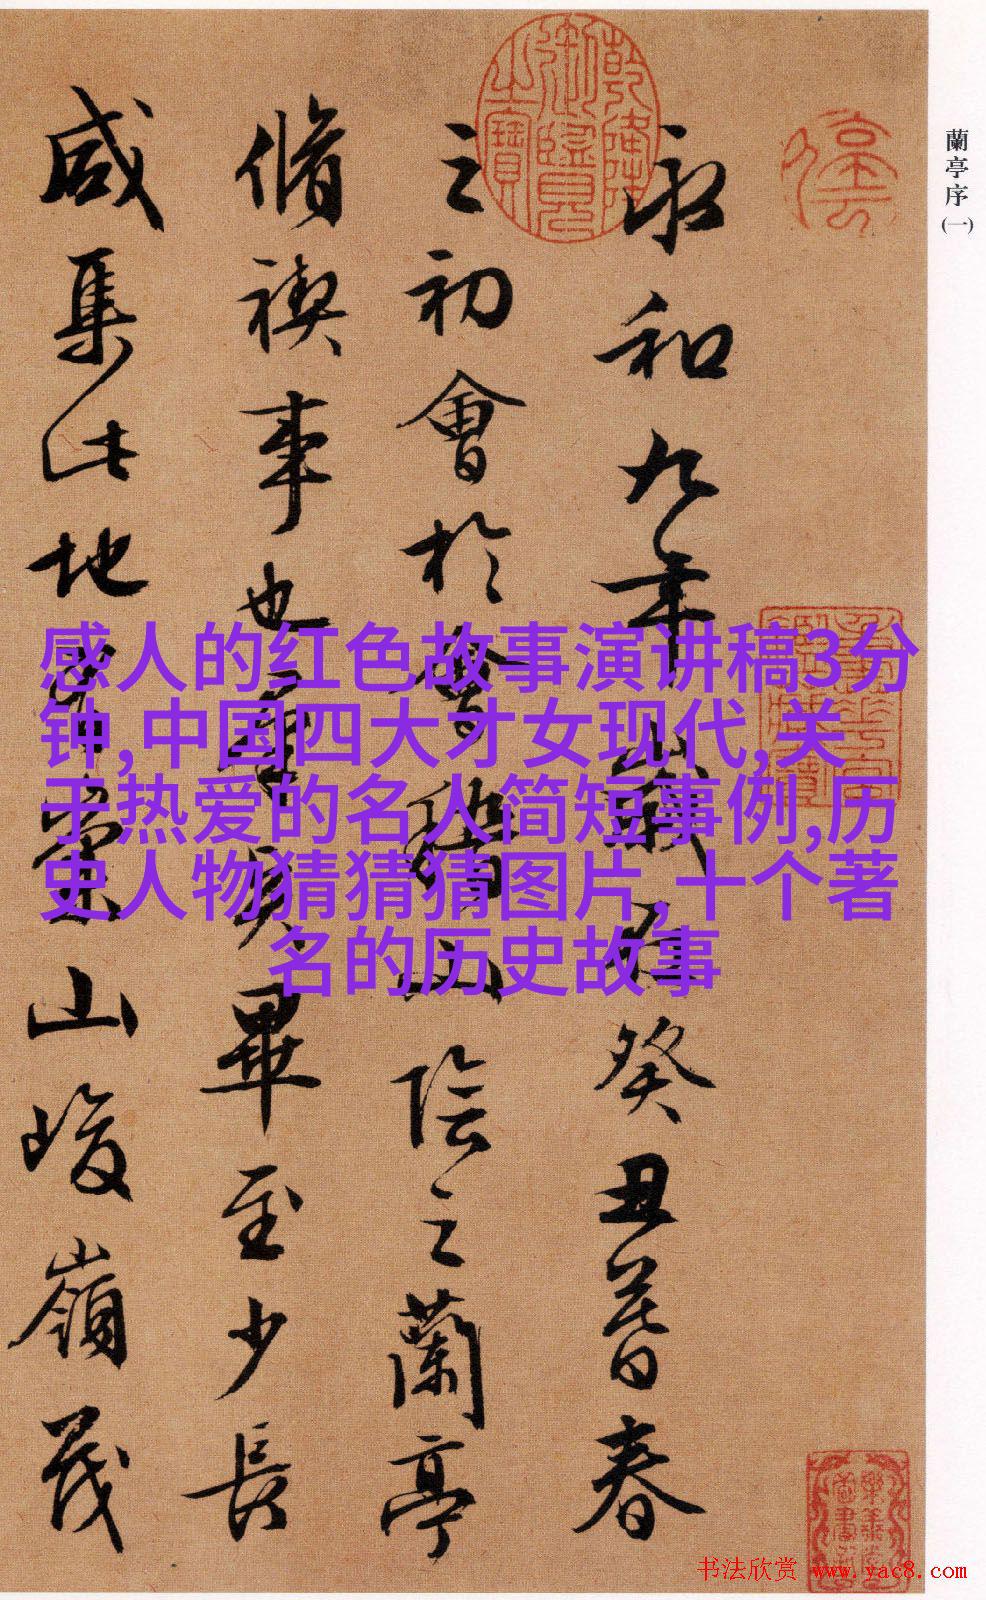 蘭亭序(一)
永和九年歲在癸丑暮春
之初會於會稽山陰之蘭亭
脩禊事也羣賢畢至少長
咸集此地有崇山峻嶺茂
乾隆御覽之寶
感人的红色故事演讲稿3分
钟,中国四大才女现代,关
于热爱的名人简短事例,历
史人物猜猜猜图片,十个著
名的历史故事
书法欣赏 www.yac8.com